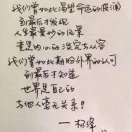 我们曾如此渴望命运的波澜
到最后才发现
人生最曼妙的风景
竟是内心的淡定与从容
我们曾如此期盼外界的认可
到最后才知道
世界是自己的
与他人毫无关系！
一 杨绛